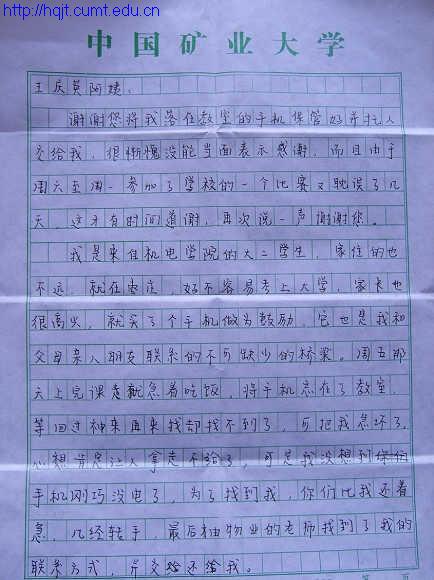 http://hqjt.cumt.edu.cn
中国矿业大学
王庆英阿姨：
谢谢您将我落在教室的手机保管好并托人
交给我，很惭愧没能当面表示感谢，而且由于
周六至周一参加了学校的一个比赛又耽误了几
天，这才有时间道谢，再次说一声谢谢您。
我是来自机电学院的大二学生，家住的也
不远，就在枣庄，好不容易考上大学，家长也
很高兴，就买了个手机做为鼓励，它也是我和
父母亲人朋友联系的不可缺少的桥梁。周五那
天上完课走就急着吃饭，将手机忘在了教室，
等回过神来再来找却找不到了，可把我急坏了。
心想肯定让人拿走不给了，可是我没想到你们
手机刚巧没电了，为了找到我，你们比我还着
急，几经转手，最后由物业的老师找到了我的
联系方式，并交给还给我。